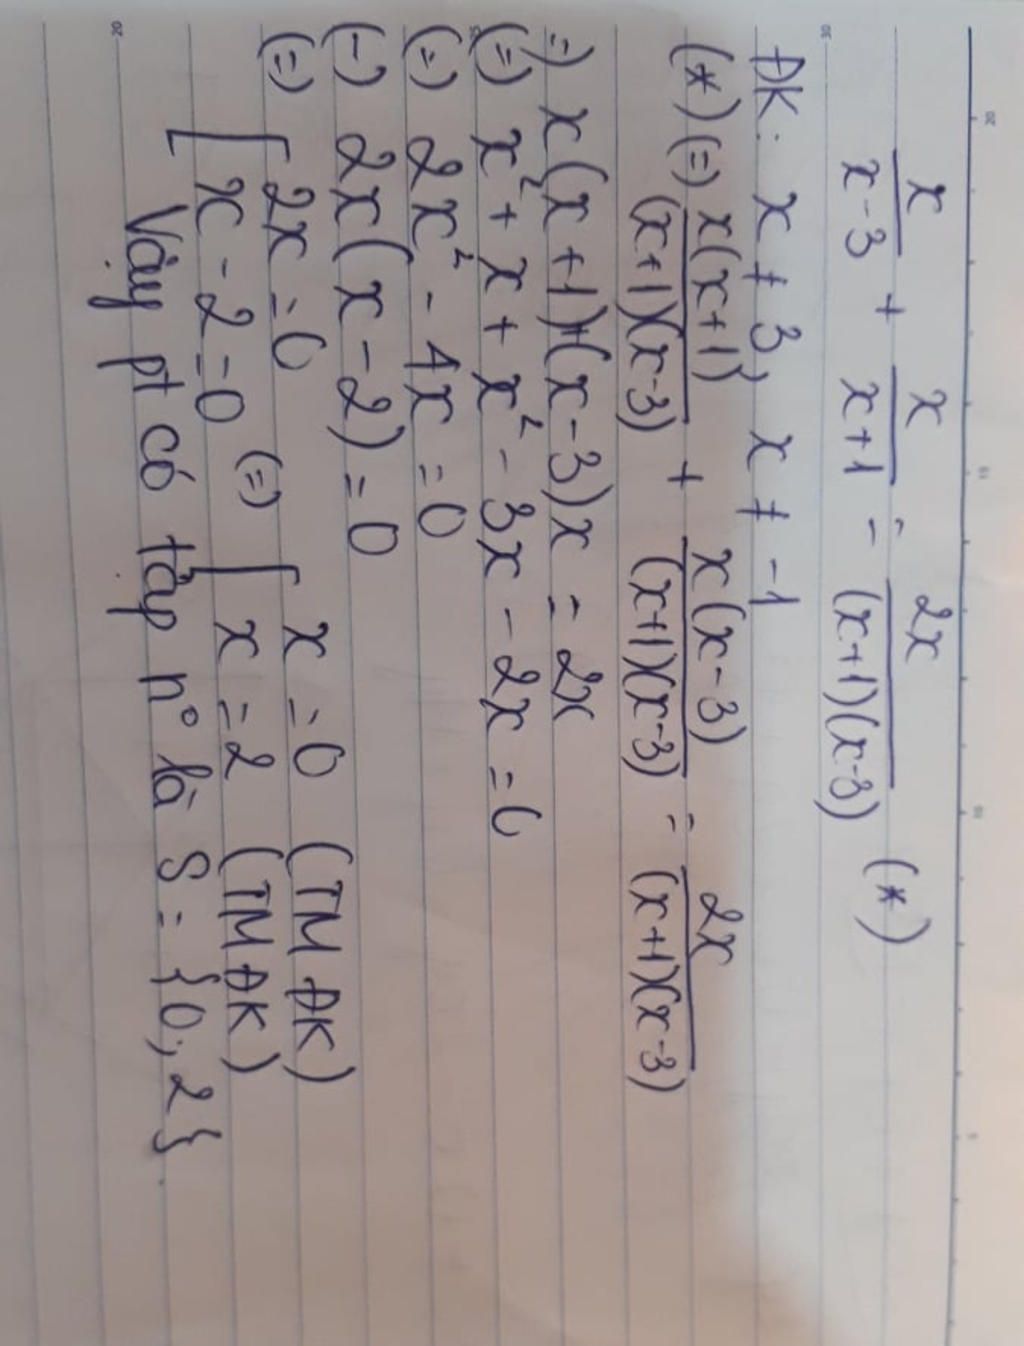 x/(x-3) + x/(x+1) = 2x/((x+1)(x-3)) (*)
ĐK: x ≠ 3, x ≠ -1
(*) (=) x(x+1)/((x+1)(x-3)) + x(x-3)/((x+1)(x-3)) = 2x/((x+1)(x-3))
=) x(x+1)+(x-3)x = 2x
(=) x² + x + x² - 3x - 2x = 0
(=) 2x² - 4x = 0
(=) 2x(x-2) = 0
(=) [ 2x = 0
x - 2 = 0 (=) [ x = 0 (TMĐK)
x = 2 (TMĐK)
Vậy pt có tập n° là S = {0; 2}.